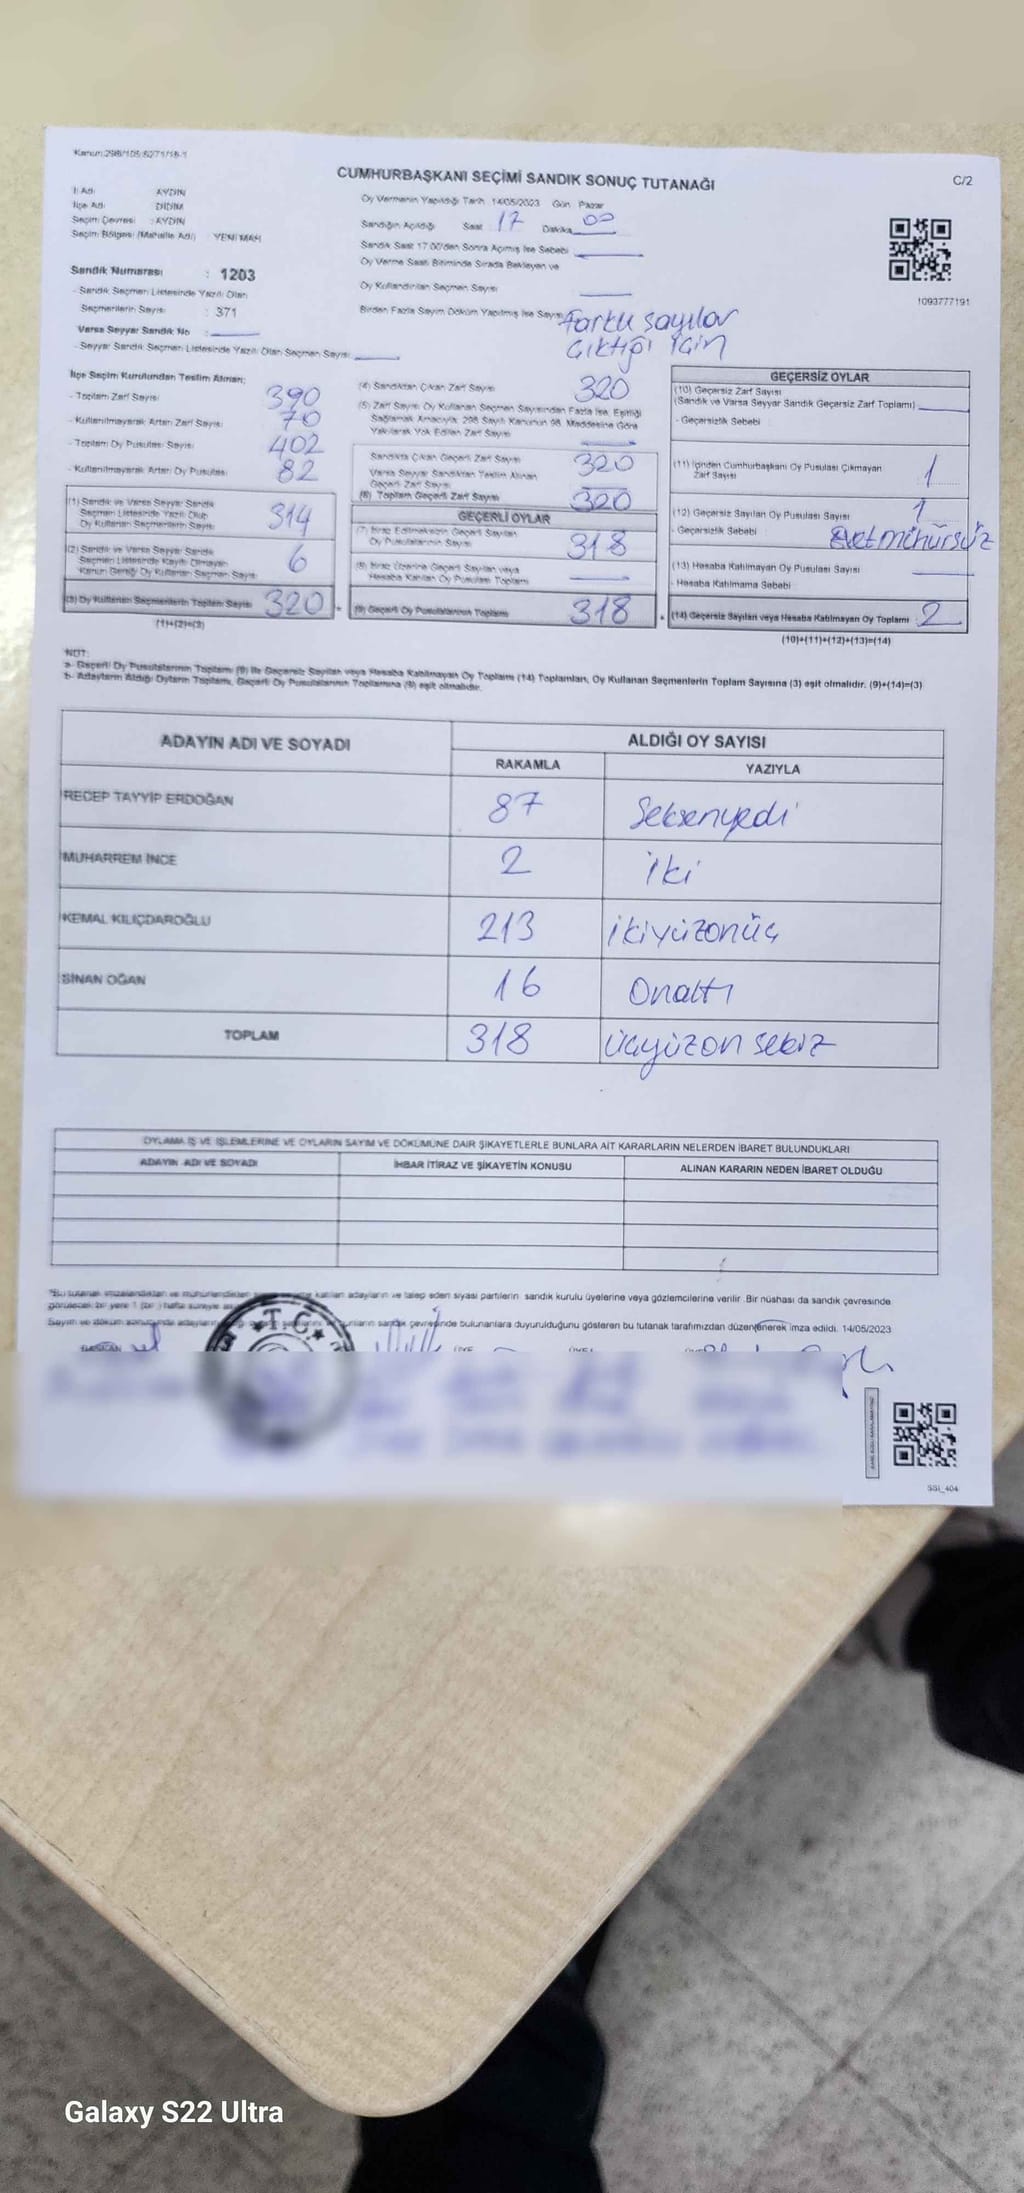 Kanun:298/105;6271/18-1
CUMHURBAŞKANI SEÇİMİ SANDIK SONUÇ TUTANAĞI
C/2
İl Adı AYDIN
İlçe Adı DİDİM
Seçim Çevresi : AYDIN
Seçim Bölgesi (Mahalle Adı) YENİ MAH
Oy Vermenin Yapıldığı Tarih 14/05/2023 Gün Pazar
Sandığın Açıldığı Saat 17 Dakika 00
Sandık Saat 17.00'den Sonra Açılmış İse Sebebi
Oy Verme Saati Bitiminde Sırada Bekleyen ve
Oy Kullandırılan Seçmen Sayısı
Birden Fazla Sayım Döküm Yapılmış İse Sayısı Farklı sayılar
çıktığı için
1093777191
Sandık Numarası : 1203
- Sandık Seçmen Listesinde Yazılı Olan
Seçmenlerin Sayısı : 371
Varsa Seyyar Sandık No :
- Seyyar Sandık Seçmen Listesinde Yazılı Olan Seçmen Sayısı
İlçe Seçim Kurulundan Teslim Alınan;
- Toplam Zarf Sayısı 390
- Kullanılmayarak Artan Zarf Sayısı 70
- Toplam Oy Pusulası Sayısı 402
- Kullanılmayarak Artan Oy Pusulası 82
(1) Sandık ve Varsa Seyyar Sandık
Seçmen Listesinde Yazılı Olup
Oy Kullanan Seçmenlerin Sayısı 314
(2) Sandık ve Varsa Seyyar Sandık
Seçmen Listesinde Kayıtlı Olmayan
Kanun Gereği Oy Kullanan Seçmen Sayısı 6
(3) Oy Kullanan Seçmenlerin Toplam Sayısı 320
(1)+(2)=(3)
(4) Sandıktan Çıkan Zarf Sayısı 320
(5) Zarf Sayısı Oy Kullanan Seçmen Sayısından Fazla İse, Eşitliği
Sağlamak Amacıyla; 298 Sayılı Kanunun 98. Maddesine Göre
Yakılarak Yok Edilen Zarf Sayısı
Sandıkta Çıkan Geçerli Zarf Sayısı 320
Varsa Seyyar Sandıktan Teslim Alınan
Geçerli Zarf Sayısı
(6) Toplam Geçerli Zarf Sayısı 320
GEÇERLİ OYLAR
(7) İtiraz Edilmeksizin Geçerli Sayılan
Oy Pusulalarının Sayısı 318
(8) İtiraz Üzerine Geçerli Sayılan veya
Hesaba Katılan Oy Pusulası Toplamı
(9) Geçerli Oy Pusulalarının Toplamı 318
GEÇERSİZ OYLAR
(10) Geçersiz Zarf Sayısı
(Sandık ve Varsa Seyyar Sandık Geçersiz Zarf Toplamı)
- Geçersizlik Sebebi
(11) İçinden Cumhurbaşkanı Oy Pusulası Çıkmayan
Zarf Sayısı 1
(12) Geçersiz Sayılan Oy Pusulası Sayısı 1
- Geçersizlik Sebebi Evet mühürsüz
(13) Hesaba Katılmayan Oy Pusulası Sayısı
- Hesaba Katılmama Sebebi
(14) Geçersiz Sayılan veya Hesaba Katılmayan Oy Toplamı 2
(10)+(11)+(12)+(13)=(14)
NOT:
a- Geçerli Oy Pusulalarının Toplamı (9) ile Geçersiz Sayılan veya Hesaba Katılmayan Oy Toplamı (14) Toplamları, Oy Kullanan Seçmenlerin Toplam Sayısına (3) eşit olmalıdır. (9)+(14)=(3)
b- Adayların Aldığı Oyların Toplamı, Geçerli Oy Pusulalarının Toplamına (9) eşit olmalıdır.
ADAYIN ADI VE SOYADI
ALDIĞI OY SAYISI
RAKAMLA YAZIYLA
RECEP TAYYİP ERDOĞAN 87 Seksenyedi
MUHARREM İNCE 2 İki
KEMAL KILIÇDAROĞLU 213 ikiyüzonüç
SİNAN OĞAN 16 Onaltı
TOPLAM 318 üçyüzon sekiz
OYLAMA İŞ VE İŞLEMLERİNE VE OYLARIN SAYIM VE DÖKÜMÜNE DAİR ŞİKAYETLERLE BUNLARA AİT KARARLARIN NELERDEN İBARET BULUNDUKLARI
ADAYIN ADI VE SOYADI İHBAR İTİRAZ VE ŞİKAYETİN KONUSU ALINAN KARARIN NEDEN İBARET OLDUĞU
*Bu tutanak imzalandıktan ve mühürlendikten katılan adayların ve talep eden siyasi partilerin sandık kurulu üyelerine veya gözlemcilerine verilir. Bir nüshası da sandık çevresinde
görülecek bir yere 1 (bir) hafta süreyle
Sayım ve döküm sonucunda adayların sandık çevresinde bulunanlara duyurulduğunu gösteren bu tutanak tarafımızdan düzenlenerek imza edildi. 14/05/2023
T.C.
BAŞKAN ÜYE ÜYE
SSI_404
Galaxy S22 Ultra